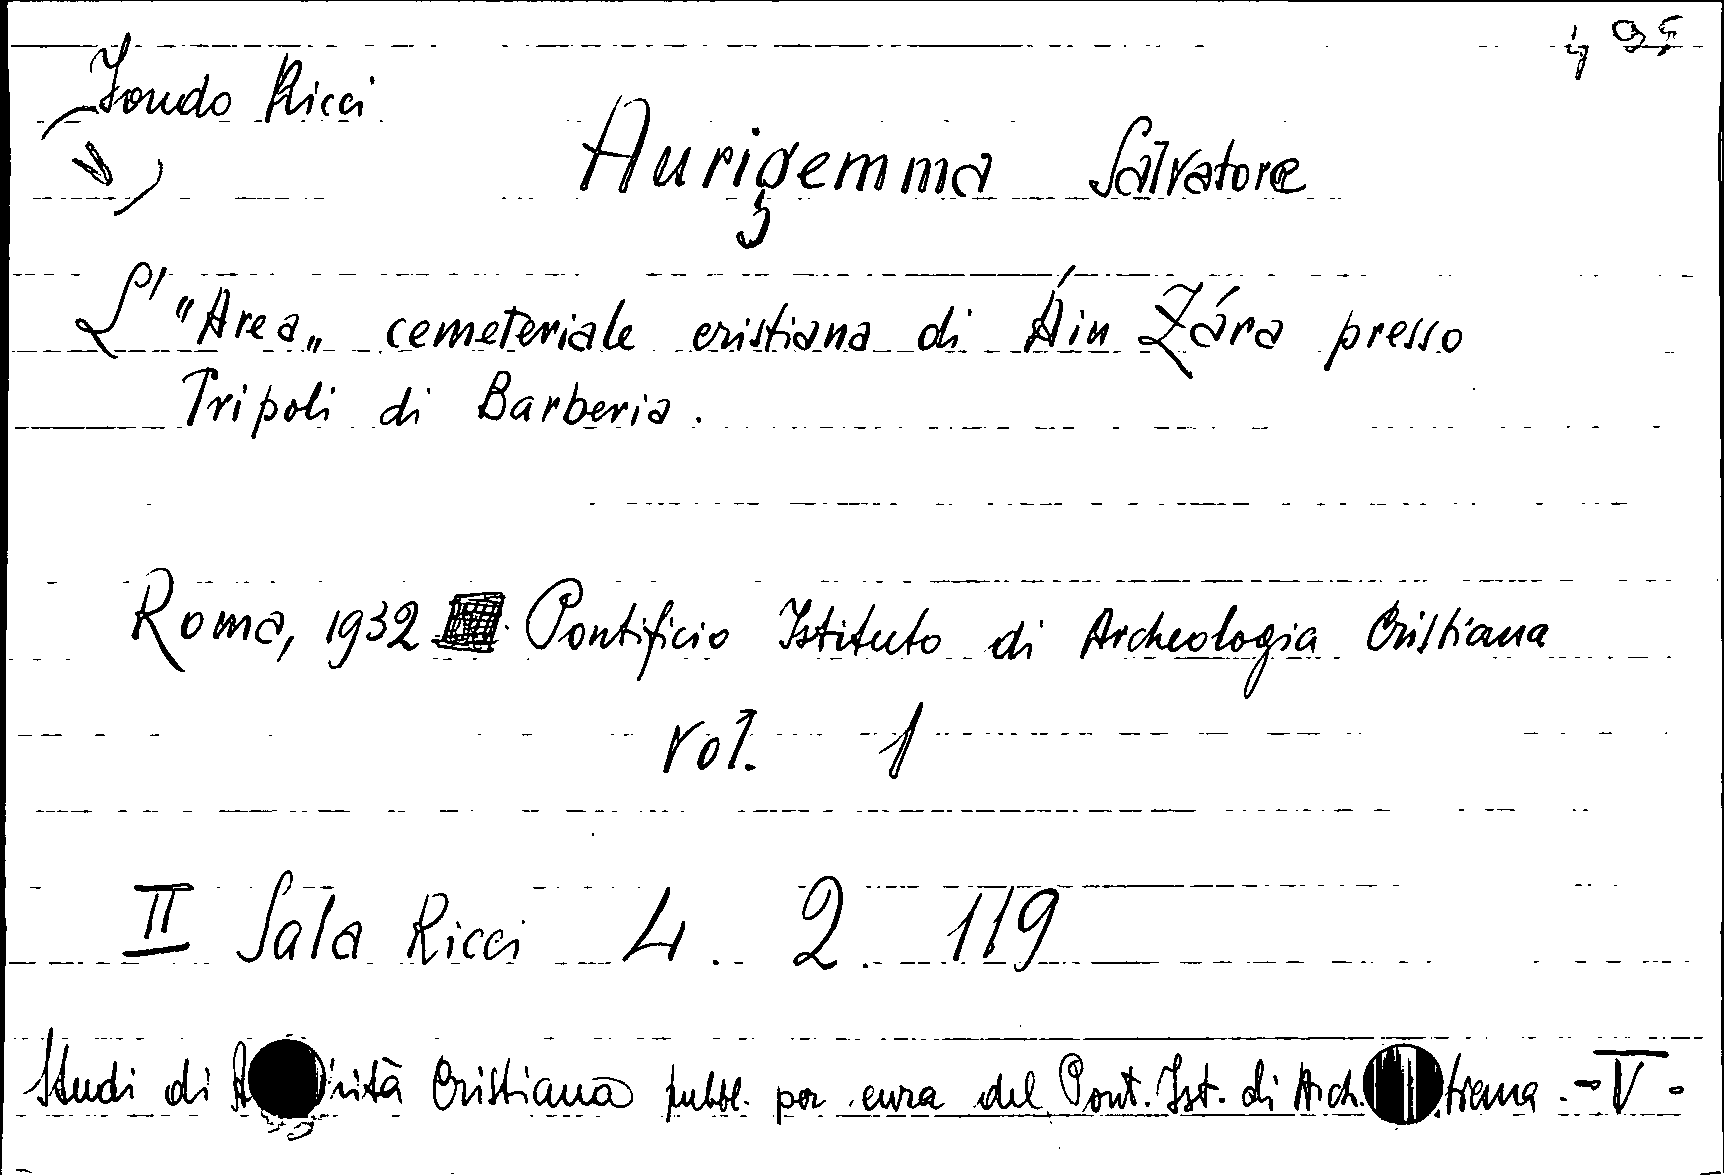 Fondo Ricci
V
Aurigemma Salvatore
L' "Area„ cemeteriale cristiana di Áin Zára presso
Tripoli di Barberia.
Roma, 1932 Pontificio Istituto di Archeologia Cristiana
Vol. 1
II Sala Ricci 4. 2. 119
Studi di Cristiana pubbl. per cura del Pont. Ist. di Arch. - V -